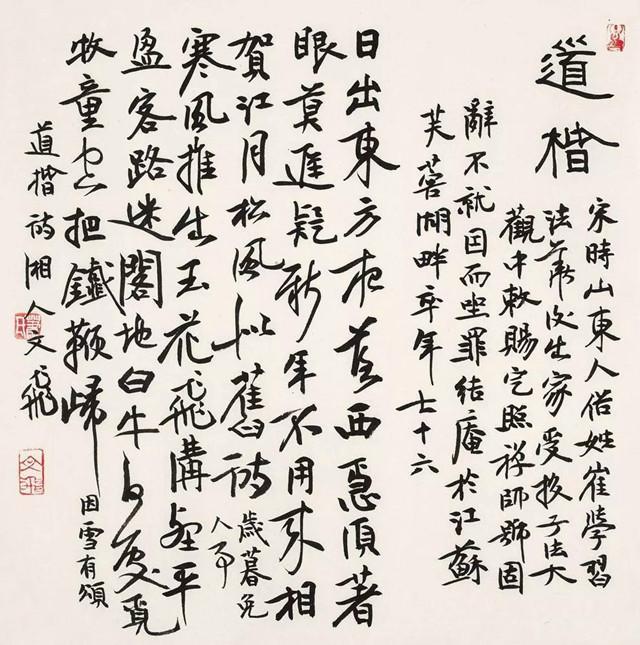 道楷
宋時山東人俗姓崔學習
法華後出家受投子法大
觀中敕賜定照禅師號固
辭不就因而坐罪結庵於江蘇
芙蓉湖畔卒年七十六
日出東方夜落西急須著
眼莫遲疑新年不用來相
賀江月松風似舊詩
歲暮免
人事
寒風推出玉花飛溝壑平
盈客路迷地白牛何處覓
牧童空把鐵鞭歸
因雪有頌
道楷詩湘人文飛
文飛